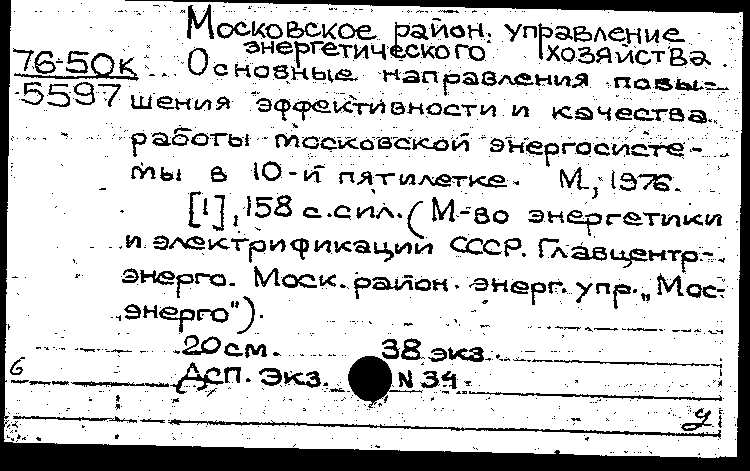 Московское район. управление
энергетического хозяйства
76-50к Основные направления повы-
5597 шения эффективности и качества
работы московской энергосисте-
мы в 10-й пятилетке. М., 1976.
[1], 158 с.с ил. (М-во энергетики
и электрификации СССР. Главцентр-
энерго. Моск. район. энерг. упр. „Мос-
энерго").
20 см. 38 экз.
б ДСП. Экз. N 34.
У